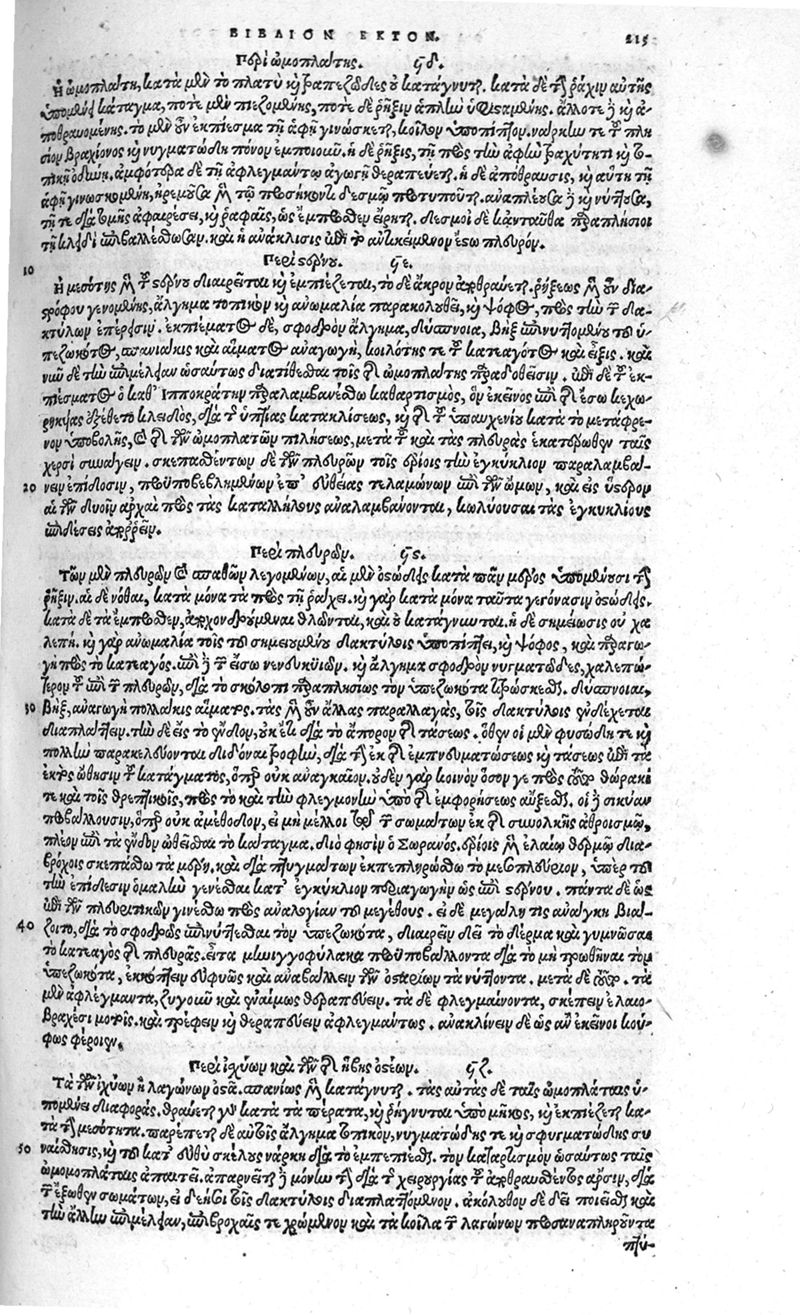 ΒΙΒΛΙΟΝ ΕΚΤΟΝ. 215
Περὶ ὠμοπλάτης. ϟδ.
Ἡ ὠμοπλάτη, κατὰ μὲν τὸ πλατὺ καὶ τραπεζῶδες οὐ κατάγνυται. κατὰ δὲ τὴν ῥάχιν αὐτῆς
ὑπομένει κάταγμα, ποτὲ μὲν πιεζομένης, ποτὲ δὲ ῥῆξιν ἁπλῶς ὑφισταμένης. ἄλλοτε δὲ καὶ ἀ-
ποθραυομένης. τὸ μὲν οὖν ἐκπίεσμα τῇ ἁφῇ γινώσκεται, κοῖλον ὑποπίπτον. ναρκῶν τε τοῦ πλη
σίον βραχίονος καὶ νυγματώδη πόνον ἐμποιοῦν. ἡ δὲ ῥῆξις, τῇ πρὸς τὴν ἁφὴν τραχύτητι καὶ το-
πικῇ ὀδύνῃ, ἀμφότερα δὲ τῇ ἀφλεγμάντῳ ἀγωγῇ θεραπεύεται. ἡ δὲ ἀπόθραυσις, καὶ αὐτὴ τῇ
ἁφῇ γινωσκομένη, ἠρεμοῦσα μὲν τῷ προσήκοντι δεσμῷ προτυποῦται. ἀναπλέουσα δὲ καὶ νύττουσα,
τῇ τε διὰ τομῆς ἀφαιρέσει, καὶ ῥαφαῖς, ὡς ἔμπροσθεν εἴρηται. δεσμοὶ δὲ κἀνταῦθα παραπλήσιοι
τῇ κλειδὶ ἐπιβαλλέσθωσαν. καὶ ἡ ἀνάκλισις ἐπὶ τὸ ἀντικείμενον ἔστω πλευρόν.
10 Περὶ στέρνου. ϟε.
Ἡ μεσότης μὲν τοῦ στέρνου διαιρεῖται καὶ ἐμπιέζεται, τὸ δὲ ἄκρον ἀποθραύεται. ῥήξεως μὲν οὖν δια-
στρόφου γενομένης, ἄλγημα τοπικὸν καὶ ἀνωμαλία παρακολουθεῖ, καὶ ψόφος, πρὸς τὴν τῶν δα-
κτύλων ἐπέρεισιν. ἐκπιέσματος δὲ, σφοδρὸν ἄλγημα, δύσπνοια, βὴξ ἐπινυττομένου τοῦ ὑ-
πεζωκότος, σπανιάκις καὶ αἵματος ἀναγωγὴ, κοιλότης τε τοῦ κατεαγότος καὶ εἶξις. καὶ
νῦν δὲ τὴν ἐπιμέλειαν ὡσαύτως διατίθεσθαι τοῖς ἐπὶ ὠμοπλάτης παραδοθεῖσιν. ἐπὶ δὲ τοῦ ἐκ-
πιέσματος ὁ καθ' Ἱπποκράτην παραλαμβανέσθω καθαρτισμὸς, ὃν ἐκεῖνος ἐπὶ τῆς ἔσω κεχω-
ρηκυίας ἐξέθετο κλειδὸς, διὰ τῆς ὑπτίας κατακλίσεως, καὶ τῆς τοῦ ὑπαυχενίου κατὰ τὸ μετάφρε-
νον ὑποβολῆς, καὶ τῆς τῶν ὠμοπλατῶν πιλήσεως, μετὰ τοῦ καὶ τὰς πλευρὰς ἑκατέρωθεν ταῖς
χερσὶ συνάγειν. σκεπασθέντων δὲ τῶν πλευρῶν τοῖς ἐρίοις τὴν ἐγκύκλιον παραλαμβά-
20 νειν ἐπίδεσιν, προϋποβεβλημένων ἐπ' εὐθείας τελαμώνων ἐπὶ τῶν ὤμων, καὶ εἰς ὕστερον
αἱ τῶν δυοῖν ἀρχαὶ πρὸς τὰς καταλλήλους ἀναλαμβάνονται, κωλύουσαι τὰς ἐγκυκλίους
ἐπιδέσεις ἀπορρεῖν.
Περὶ πλευρῶν. ϟϛ.
Τῶν μὲν πλευρῶν καὶ σπαθῶν λεγομένων, αἱ μὲν ὀστώδεις κατὰ πᾶν μέρος ὑπομένουσι τὴν
ῥῆξιν. αἱ δὲ νόθαι, κατὰ μόνα τὰ πρὸς τῇ ῥάχει. καὶ γὰρ κατὰ μόνα ταῦτα γεγόνασιν ὀστώδεις.
κατὰ δὲ τὰ ἔμπροσθεν, ἀποχονδρούμεναι θλῶνται, καὶ οὐ κατάγνυνται. ἡ δὲ σημείωσις οὐ χα
λεπή. καὶ γὰρ ἀνωμαλία τοῖς τοῦ σημειουμένου δακτύλοις ὑποπίπτει, καὶ ψόφος, καὶ παραγω-
γὴ πρὸς τὸ κατεαγός. ἐπὶ δὲ τῶν εἴσω νενευκυιῶν, καὶ ἄλγημα σφοδρὸν νυγματῶδες, χαλεπώ-
τερον τοῦ ἐπὶ τῶν πλευρῶν, διὰ τὸ σκόλοπι παραπλησίως τὸν ὑπεζωκότα τιτρώσκεσθαι. δύσπνοιαι,
30 βὴξ, ἀναγωγὴ πολλάκις αἵματος. τὰς μὲν οὖν ἄλλας παραλλαγὰς, τοῖς δακτύλοις ἐνδέχεται
διαπλάττειν. τὴν δὲ εἰς τὸ ἔνδον, οὐκ ἔτι διὰ τὸ ἄπορον τῆς τάσεως. ὅθεν οἱ μὲν φυσώδη τε καὶ
πολλὴν παρακελεύονται διδόναι τροφὴν, διὰ τῆς ἐκ τῆς ἐμπνευματώσεως καὶ τάσεως ἐπὶ τὰ
ἐκτὸς ὤθησιν τοῦ κατάγματος, ὅπερ οὐκ ἀναγκαῖον. οὐδὲν γὰρ κοινὸν ὅσον γε πρὸς τοῦτο θώρακί
τε καὶ τοῖς θρεπτικοῖς, πρὸς τὸ καὶ τὴν φλεγμονὴν ὑπὸ τῆς ἐμφορήσεως αὔξεσθαι. οἱ δὲ σικύαν
προβάλλουσιν, ὅπερ οὐκ ἀμέθοδον, εἰ μὴ μέλλοι τῷ τῶν σωμάτων ἐκ τῆς συνολκῆς ἀθροισμῷ,
πλέον ἐπὶ τὰ ἔνδον ὠθεῖσθαι τὸ κάταγμα. διό φησὶν ὁ Σωρανὸς. ἐρίοις μὲν ἐλαίῳ θερμῷ δια-
βρόχοις σκεπέσθω τὰ μέρη, καὶ διὰ πτυγμάτων ἐκπεπληρώσθω τὸ μεσοπλεύριον, ὑπὲρ τοῦ
τὴν ἐπίδεσιν ὁμαλὴν γενέσθαι κατ' ἐγκύκλιον περιαγωγὴν ὡς ἐπὶ στέρνου. πάντα δὲ ὡς
ἐπὶ τῶν πλευριτικῶν γινέσθω πρὸς ἀναλογίαν τοῦ μεγέθους. εἰ δὲ μεγάλη τις ἀνάγκη βιά-
40 ζοιτο, διὰ τὸ σφοδρῶς ἐπινύττεσθαι τὸν ὑπεζωκότα, διαιρεῖν δεῖ τὸ δέρμα καὶ γυμνώσαντας
τὸ κατεαγὸς τῆς πλευρᾶς. εἶτα μηνιγγοφύλακα προϋποβάλλοντα διὰ τὸ μὴ τρωθῆναι τὸν
ὑπεζωκότα, ἐκκόπτειν εὐφυῶς καὶ ἀναβάλλειν τῶν ὀσταρίων τὰ νύττοντα. μετὰ δὲ τοῦτο. τὰ
μὲν ἀφλέγμαντα, ζυγοῦν καὶ ἐναίμως θεραπεύειν. τὰ δὲ φλεγμαίνοντα, σκέπειν ἐλαιο-
βραχέσι μοτοῖς. καὶ τρέφειν καὶ θεραπεύειν ἀφλεγμάντως. ἀνακλίνειν δὲ ὡς ἂν ἐκεῖνοι κού-
φως φέροιεν.
Περὶ ἰσχίων καὶ τῶν τῆς ἥβης ὀστέων. ϟζ.
Τὰ τῶν ἰσχίων ἢ λαγόνων ὀστᾶ. σπανίως μὲν κατάγνυται. τὰς αὐτὰς δὲ ταῖς ὠμοπλάταις ὑ-
πομένει διαφοράς. θραύεται γὰρ κατὰ τὰ πέρατα, καὶ ῥήγνυται ὑπὸ μῆκος, καὶ ἐκπιέζεται κα-
τὰ τὴν μεσότητα. παρέπεται δὲ αὐτοῖς ἄλγημα τοπικὸν, νυγματώδης τε καὶ σφυγματώδης συ
50 ναίσθησις, καὶ τοῦ κατ' εὐθὺ σκέλους νάρκη διὰ τὸ ἐμπεπιέσθαι. τὸν καταρτισμὸν ὡσαύτως ταῖς
ὠμοπλάταις ἀπαιτεῖ. ἀπαρνεῖται δὲ μόνην τὴν διὰ τῆς χειρουργίας τοῦ ἀποθραυσθέντος ἄρσιν, διὰ
τῶν ἔξωθεν σωμάτων, εἰ δέῃ τοῖς δακτύλοις διαπλαττόμενον. ἀκόλουθον δὲ δεῖ ποιεῖσθαι καὶ
τὴν ἄλλην ἐπιμέλειαν, ἐπιβροχαῖς τε χρώμενον καὶ τὰ κοῖλα τῶν λαγόνων προσαναπληροῦντα
πτύ-